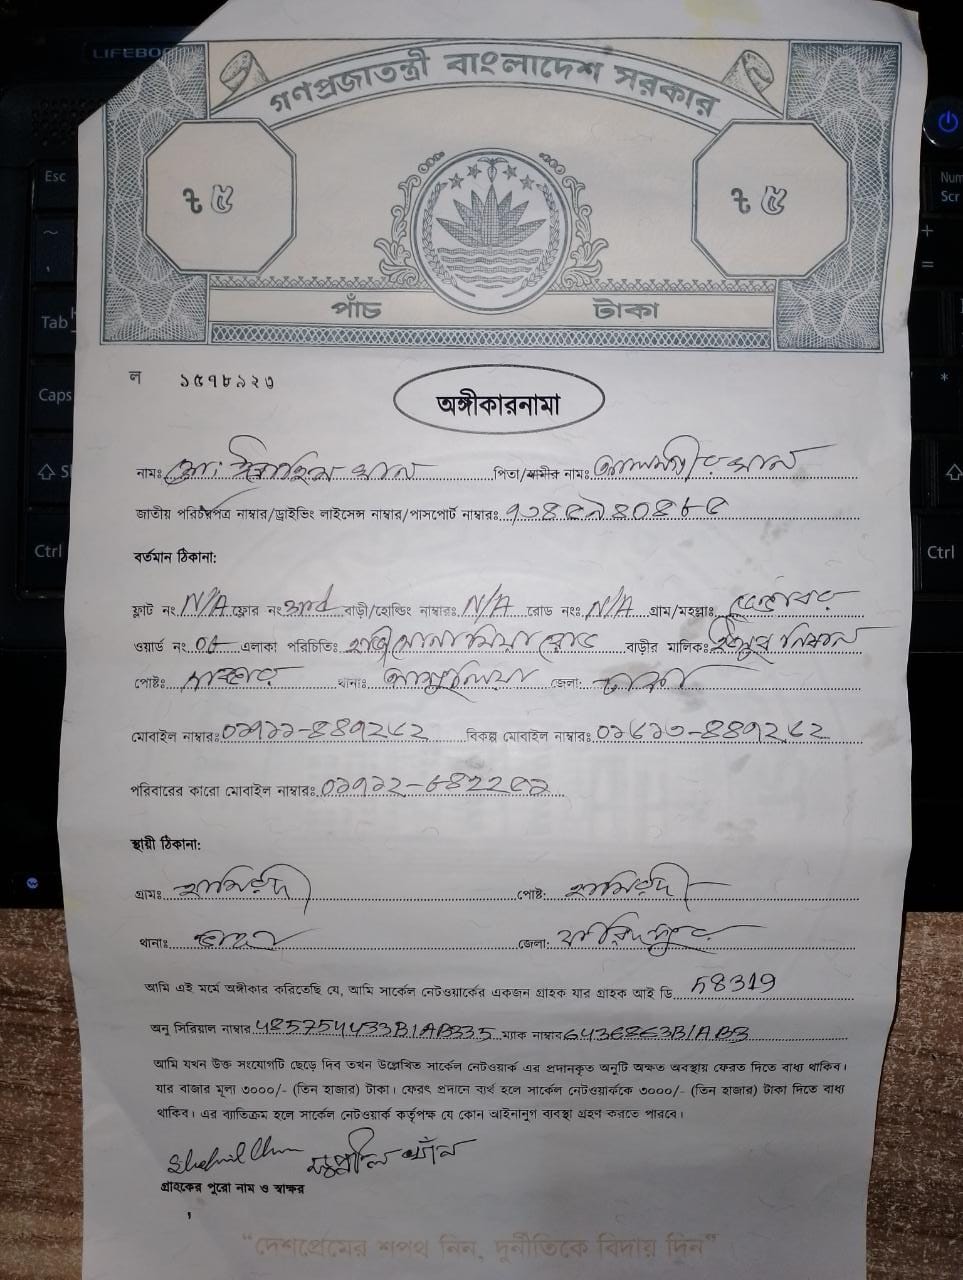 LIFEBOO
গণপ্রজাতন্ত্রী বাংলাদেশ সরকার
৳ ৫ ৳ ৫
পাঁচ টাকা
ল ১৫৭৮৯২৩
অঙ্গীকারনামা
নামঃ মো: ইব্রাহিম খান পিতা/স্বামীর নামঃ আলমগীর খান
জাতীয় পরিচয়পত্র নাম্বার/ড্রাইভিং লাইসেন্স নাম্বার/পাসপোর্ট নাম্বারঃ
বর্তমান ঠিকানা:
ফ্লাট নং N/A ফ্লোর নং 3rd বাড়ী/হোল্ডিং নাম্বারঃ N/A রোড নংঃ N/A গ্রাম/মহল্লাঃ
ওয়ার্ড নং এলাকা পরিচিতিঃ হাজী সোনা মিয়া রোড বাড়ীর মালিকঃ
পোষ্টঃ সাভার থানাঃ আশুলিয়া জেলা: ঢাকা
মোবাইল নাম্বারঃ ০১৭১১-৪৪৭২৫২ বিকল্প মোবাইল নাম্বারঃ ০১৬১৩-৪৪৭২৫২
পরিবারের কারো মোবাইল নাম্বারঃ
স্থায়ী ঠিকানা:
গ্রামঃ হামিরদী পোষ্ট: হামিরদী
থানাঃ ভাঙ্গা জেলা: ফরিদপুর
আমি এই মর্মে অঙ্গীকার করিতেছি যে, আমি সার্কেল নেটওয়ার্কের একজন গ্রাহক যার গ্রাহক আই ডি 58319
অনু সিরিয়াল নাম্বার 485754433B1AB335 ম্যাক নাম্বার 6436863B1AB3
আমি যখন উক্ত সংযোগটি ছেড়ে দিব তখন উল্লেখিত সার্কেল নেটওয়ার্ক এর প্রদানকৃত অনুটি অক্ষত অবস্থায় ফেরত দিতে বাধ্য থাকিব।
যার বাজার মূল্য ৩০০০/- (তিন হাজার) টাকা। ফেরৎ প্রদানে ব্যর্থ হলে সার্কেল নেটওয়ার্ককে ৩০০০/- (তিন হাজার) টাকা দিতে বাধ্য
থাকিব। এর ব্যতিক্রম হলে সার্কেল নেটওয়ার্ক কর্তৃপক্ষ যে কোন আইনানুগ ব্যবস্থা গ্রহণ করতে পারবে।
গ্রাহকের পুরো নাম ও স্বাক্ষর
“দেশপ্রেমের শপথ নিন, দুর্নীতিকে বিদায় দিন”
Esc
Tab
Caps
Ctrl
Num
Scr
Ctrl